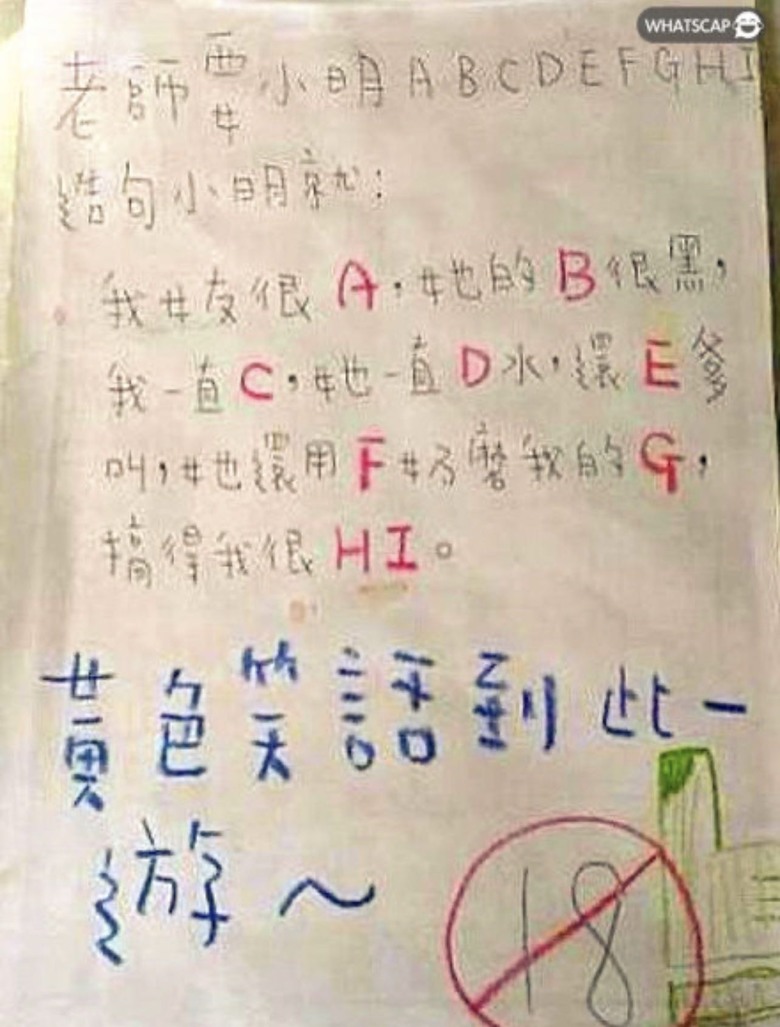 WHATSCAP
老師要小明ABCDEFGHI
造句小明就:
我女友很A,她的B很黑,
我一直C,她一直D水,還E爸爸
叫,她還用F女乃磨我的G,
搞得我很HI。
黃色笑話到此一
遊~
18